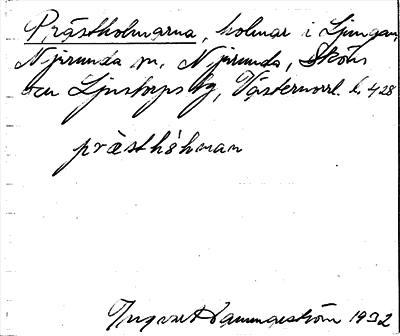 Prästholmarna, holmar i Ljungan,
Njurunda sn, Njurunda, Sköns
och Ljustorps tg, Västernorrl. l. 428
prästhòhman
Ingvar Hammarström 1932